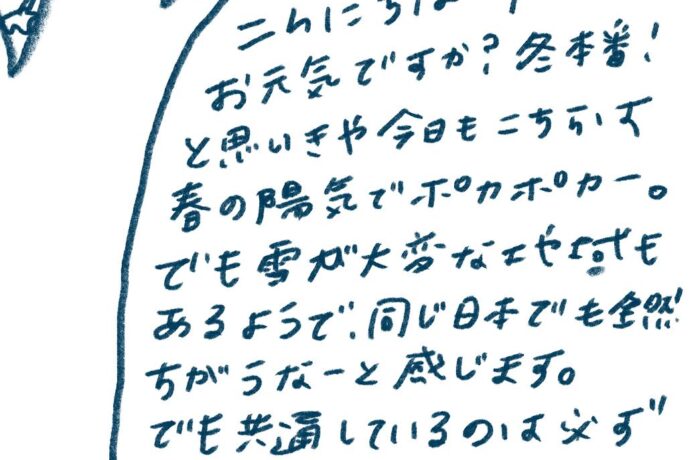 こんにちは
お元気ですか?冬本番!
と思いきや今日もこちらは
春の陽気でポカポカー。
でも雪が大変な地域も
あるようで、同じ日本でも全然
ちがうなーと感じます。
でも共通しているのは必ず